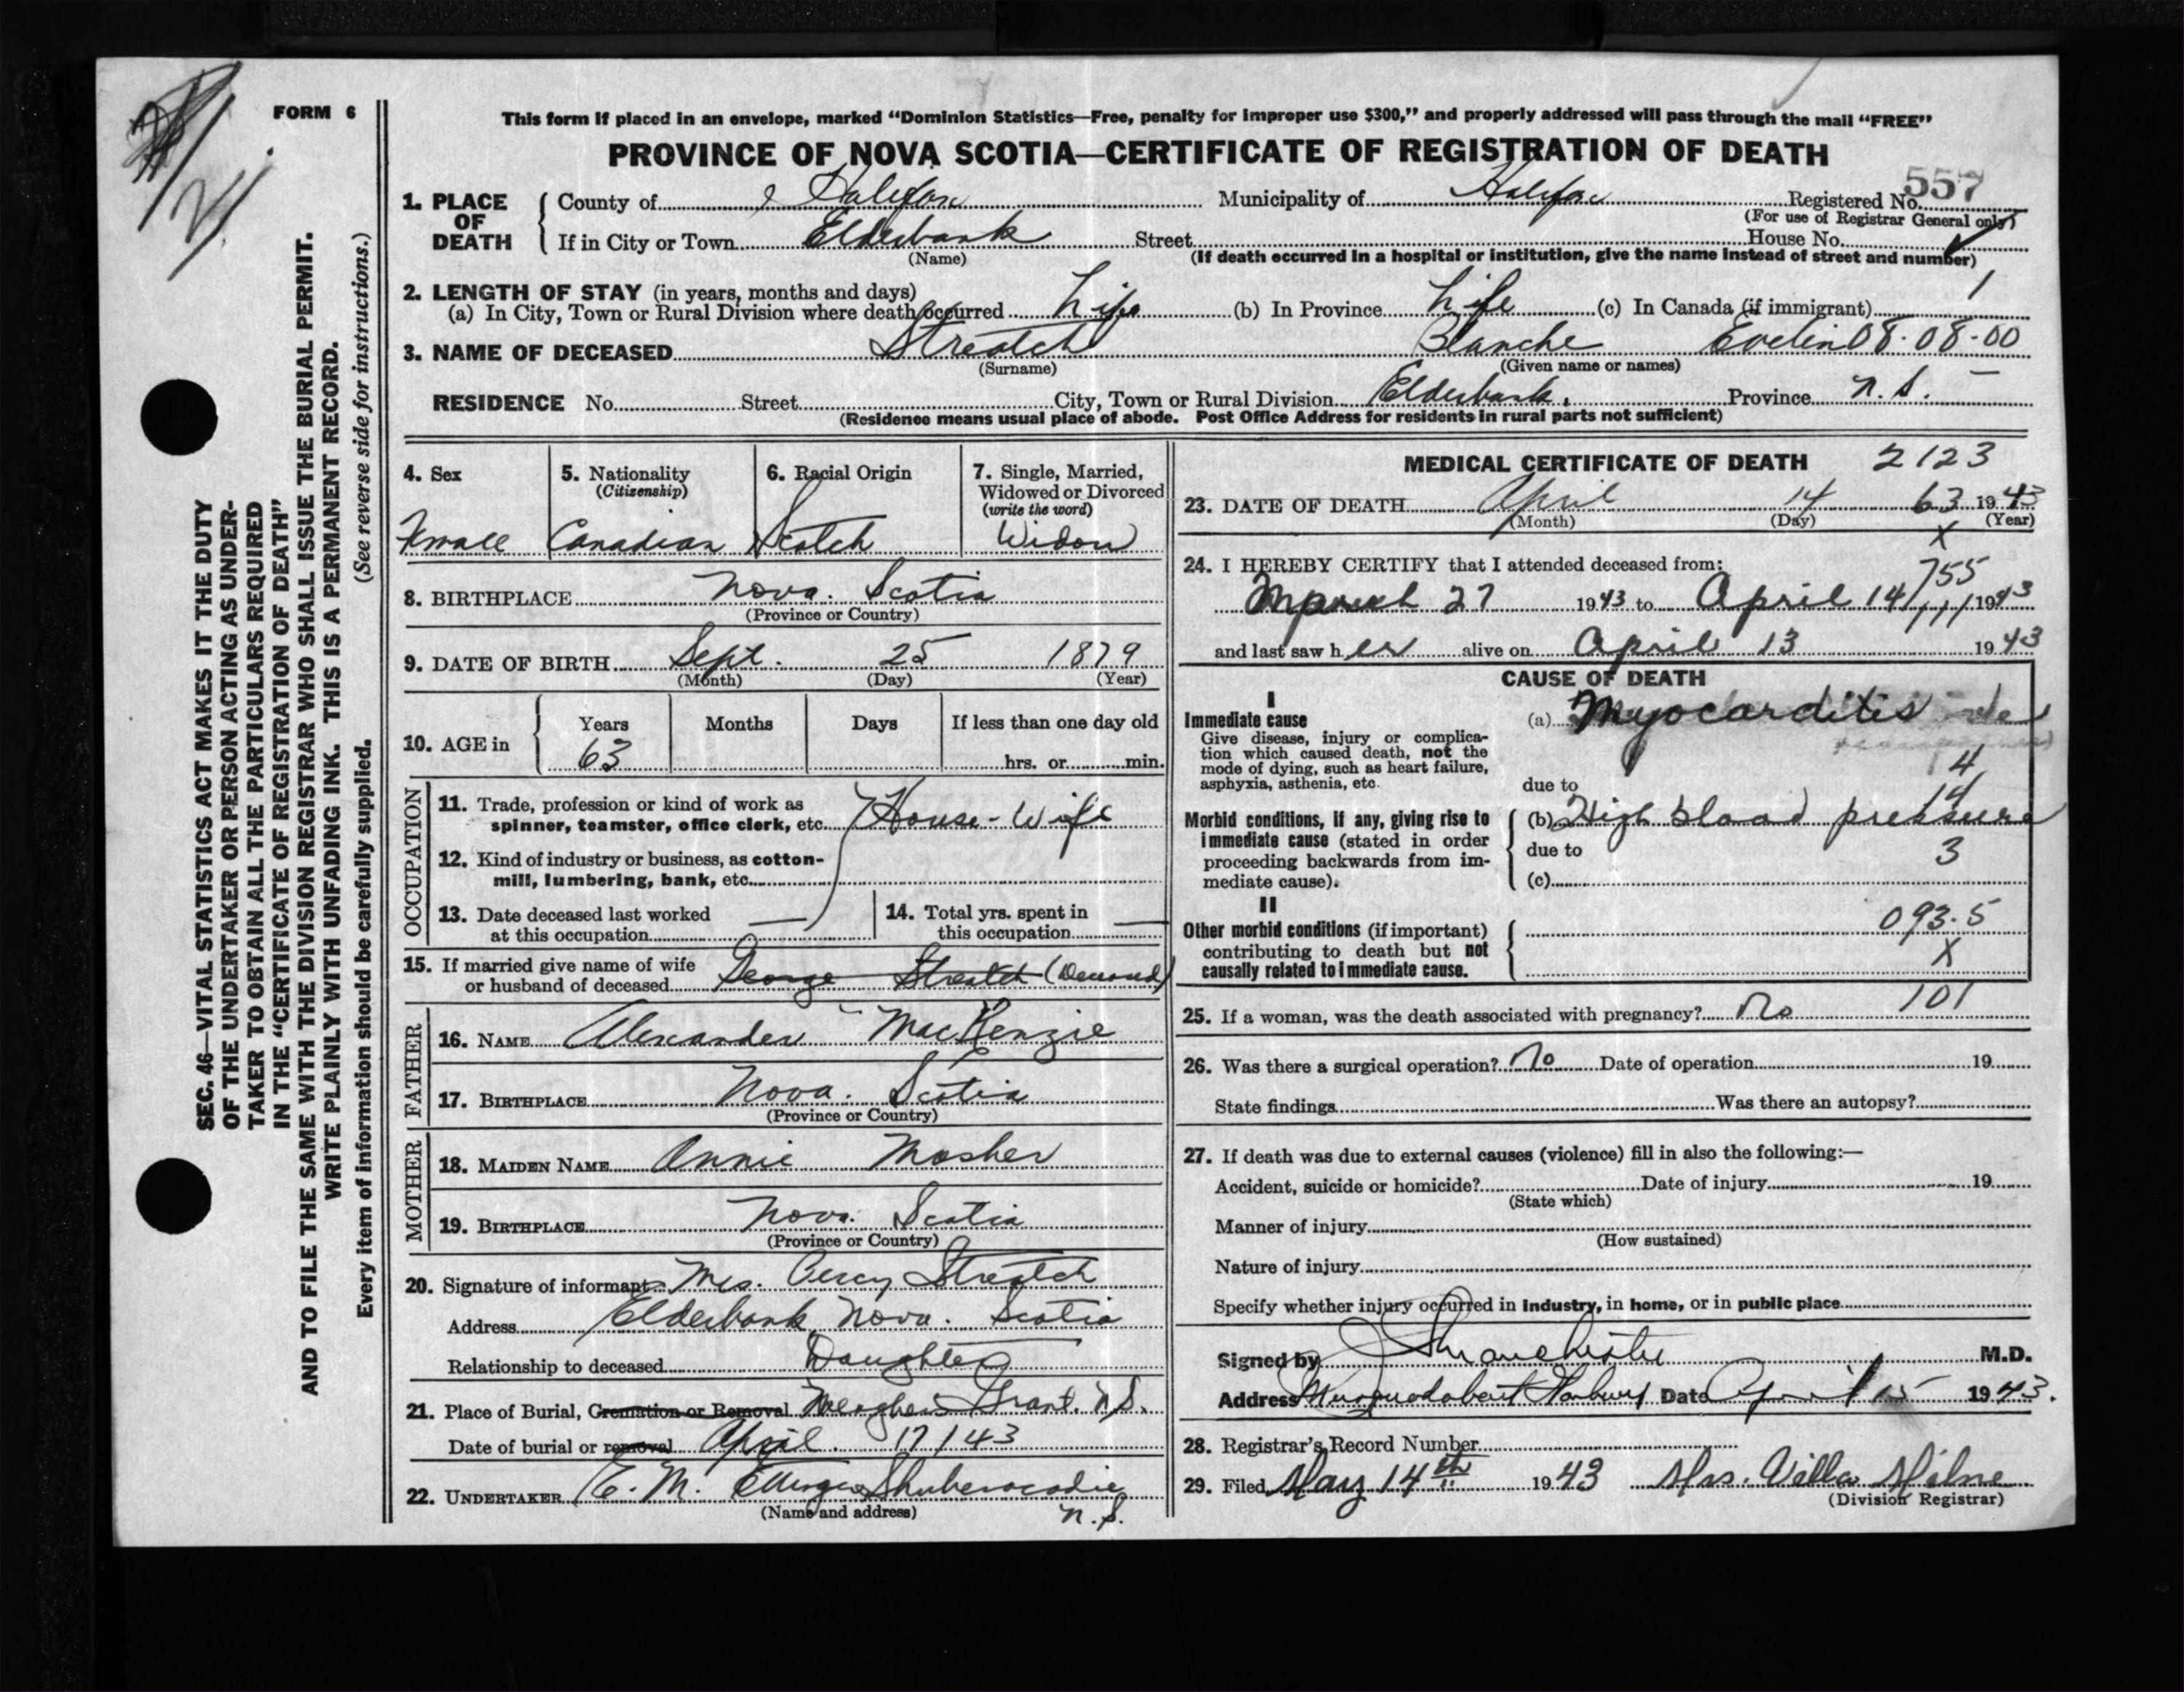 FORM 6
This form if placed in an envelope, marked “Dominion Statistics—Free, penalty for improper use $300,” and properly addressed will pass through the mail “FREE”
PROVINCE OF NOVA SCOTIA—CERTIFICATE OF REGISTRATION OF DEATH
557
1. PLACE OF DEATH { County of Halifax Municipality of Halifax Registered No.
(For use of Registrar General only)
If in City or Town Elderbank Street House No.
(Name) (If death occurred in a hospital or institution, give the name instead of street and number)
2. LENGTH OF STAY (in years, months and days)
(a) In City, Town or Rural Division where death occurred Life (b) In Province Life (c) In Canada (if immigrant)
1
3. NAME OF DECEASED Streatch Blanche Evelin 08-08-00
(Surname) (Given name or names)
RESIDENCE No. Street City, Town or Rural Division Elderbank, Province N.S.
(Residence means usual place of abode. Post Office Address for residents in rural parts not sufficient)
4. Sex
Female
5. Nationality
(Citizenship)
Canadian
6. Racial Origin
Scotch
7. Single, Married,
Widowed or Divorced
(write the word)
Widow
8. BIRTHPLACE Nova. Scotia
(Province or Country)
9. DATE OF BIRTH Sept. 25 1879
(Month) (Day) (Year)
10. AGE in { Years Months Days If less than one day old
63 hrs. or min.
OCCUPATION
11. Trade, profession or kind of work as
spinner, teamster, office clerk, etc. House-Wife
12. Kind of industry or business, as cotton-
mill, lumbering, bank, etc.
13. Date deceased last worked
at this occupation —
14. Total yrs. spent in
this occupation —
15. If married give name of wife
or husband of deceased George Streatch
FATHER
16. NAME Alexander MacKenzie
17. BIRTHPLACE Nova. Scotia
(Province or Country)
MOTHER
18. MAIDEN NAME Annie Mosher
19. BIRTHPLACE Nova. Scotia
(Province or Country)
20. Signature of informant Mrs. Percy Streatch
Address Elderbank, Nova. Scotia
Relationship to deceased Daughter
21. Place of Burial, Cremation or Removal Meaghers Grant. N.S.
Date of burial or removal April. 17/43
22. UNDERTAKER E. M. Ettinger Shubenacadie
(Name and address) N.S.
MEDICAL CERTIFICATE OF DEATH 2123
23. DATE OF DEATH April 14 63 1943
(Month) (Day) (Year)
X
24. I HEREBY CERTIFY that I attended deceased from:
755
March 27 1943 to April 14 1943
and last saw her alive on April 13 1943
CAUSE OF DEATH
I
Immediate cause
Give disease, injury or complica-
tion which caused death, not the
mode of dying, such as heart failure,
asphyxia, asthenia, etc.
(a) Myocarditis
4
due to
14
Morbid conditions, if any, giving rise to
immediate cause (stated in order
proceeding backwards from im-
mediate cause).
(b) High blood pressure
due to
3
(c)
II
Other morbid conditions (if important)
contributing to death but not
causally related to immediate cause.
093.5
X
101
25. If a woman, was the death associated with pregnancy? No
26. Was there a surgical operation? No Date of operation 19
State findings Was there an autopsy?
27. If death was due to external causes (violence) fill in also the following:—
Accident, suicide or homicide? Date of injury 19
(State which)
Manner of injury
(How sustained)
Nature of injury
Specify whether injury occurred in Industry, in home, or in public place
Signed by M.D.
Address Musquodoboit Harbour Date April 15 1943.
28. Registrar's Record Number
29. Filed May 14th 1943 Mrs. Villa Milne
(Division Registrar)
SEC. 46—VITAL STATISTICS ACT MAKES IT THE DUTY
OF THE UNDERTAKER OR PERSON ACTING AS UNDER-
TAKER TO OBTAIN ALL THE PARTICULARS REQUIRED
IN THE “CERTIFICATE OF REGISTRATION OF DEATH”
AND TO FILE THE SAME WITH THE DIVISION REGISTRAR WHO SHALL ISSUE THE BURIAL PERMIT.
WRITE PLAINLY WITH UNFADING INK. THIS IS A PERMANENT RECORD.
Every item of information should be carefully supplied. (See reverse side for instructions.)